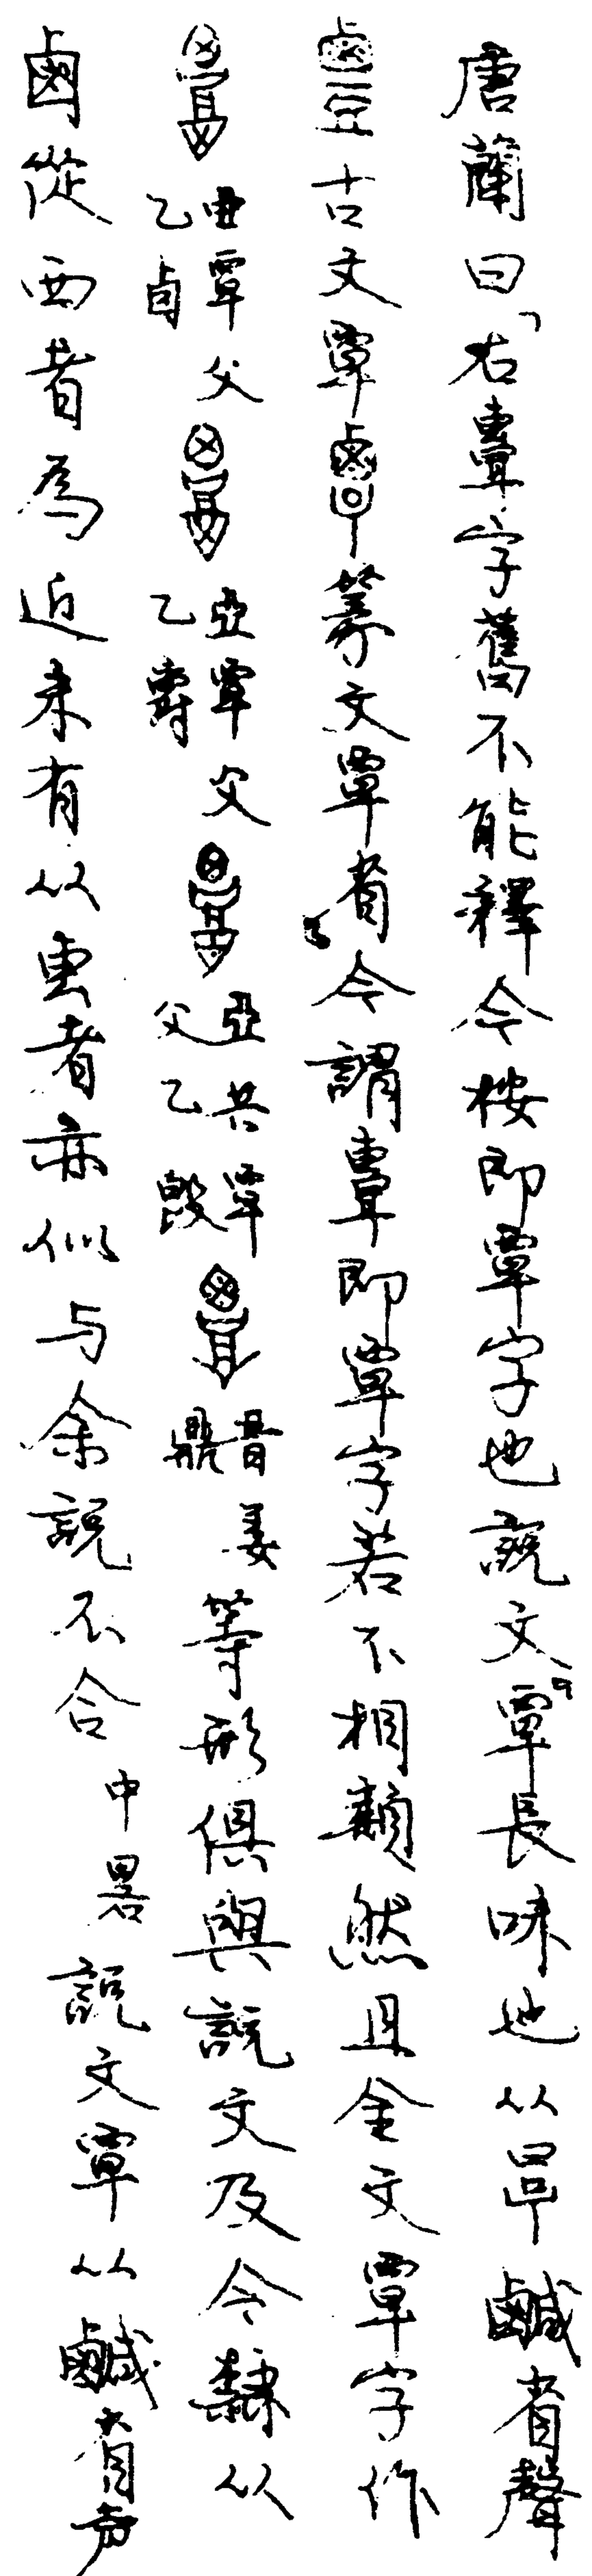 唐蘭曰「右𧟹字舊不能釋今桉即覃字也說文『覃長味也从㫗鹹省聲
古文覃篆文覃省』今謂即覃字若不相類然且金文覃字作
亞覃父乙卣亞覃父乙爵亞共覃父乙𣪘晉姜鼎等形俱與說文及今隸从
鹵從西者為近未有从叀者亦似与余說不合中畧說文覃从鹹省聲